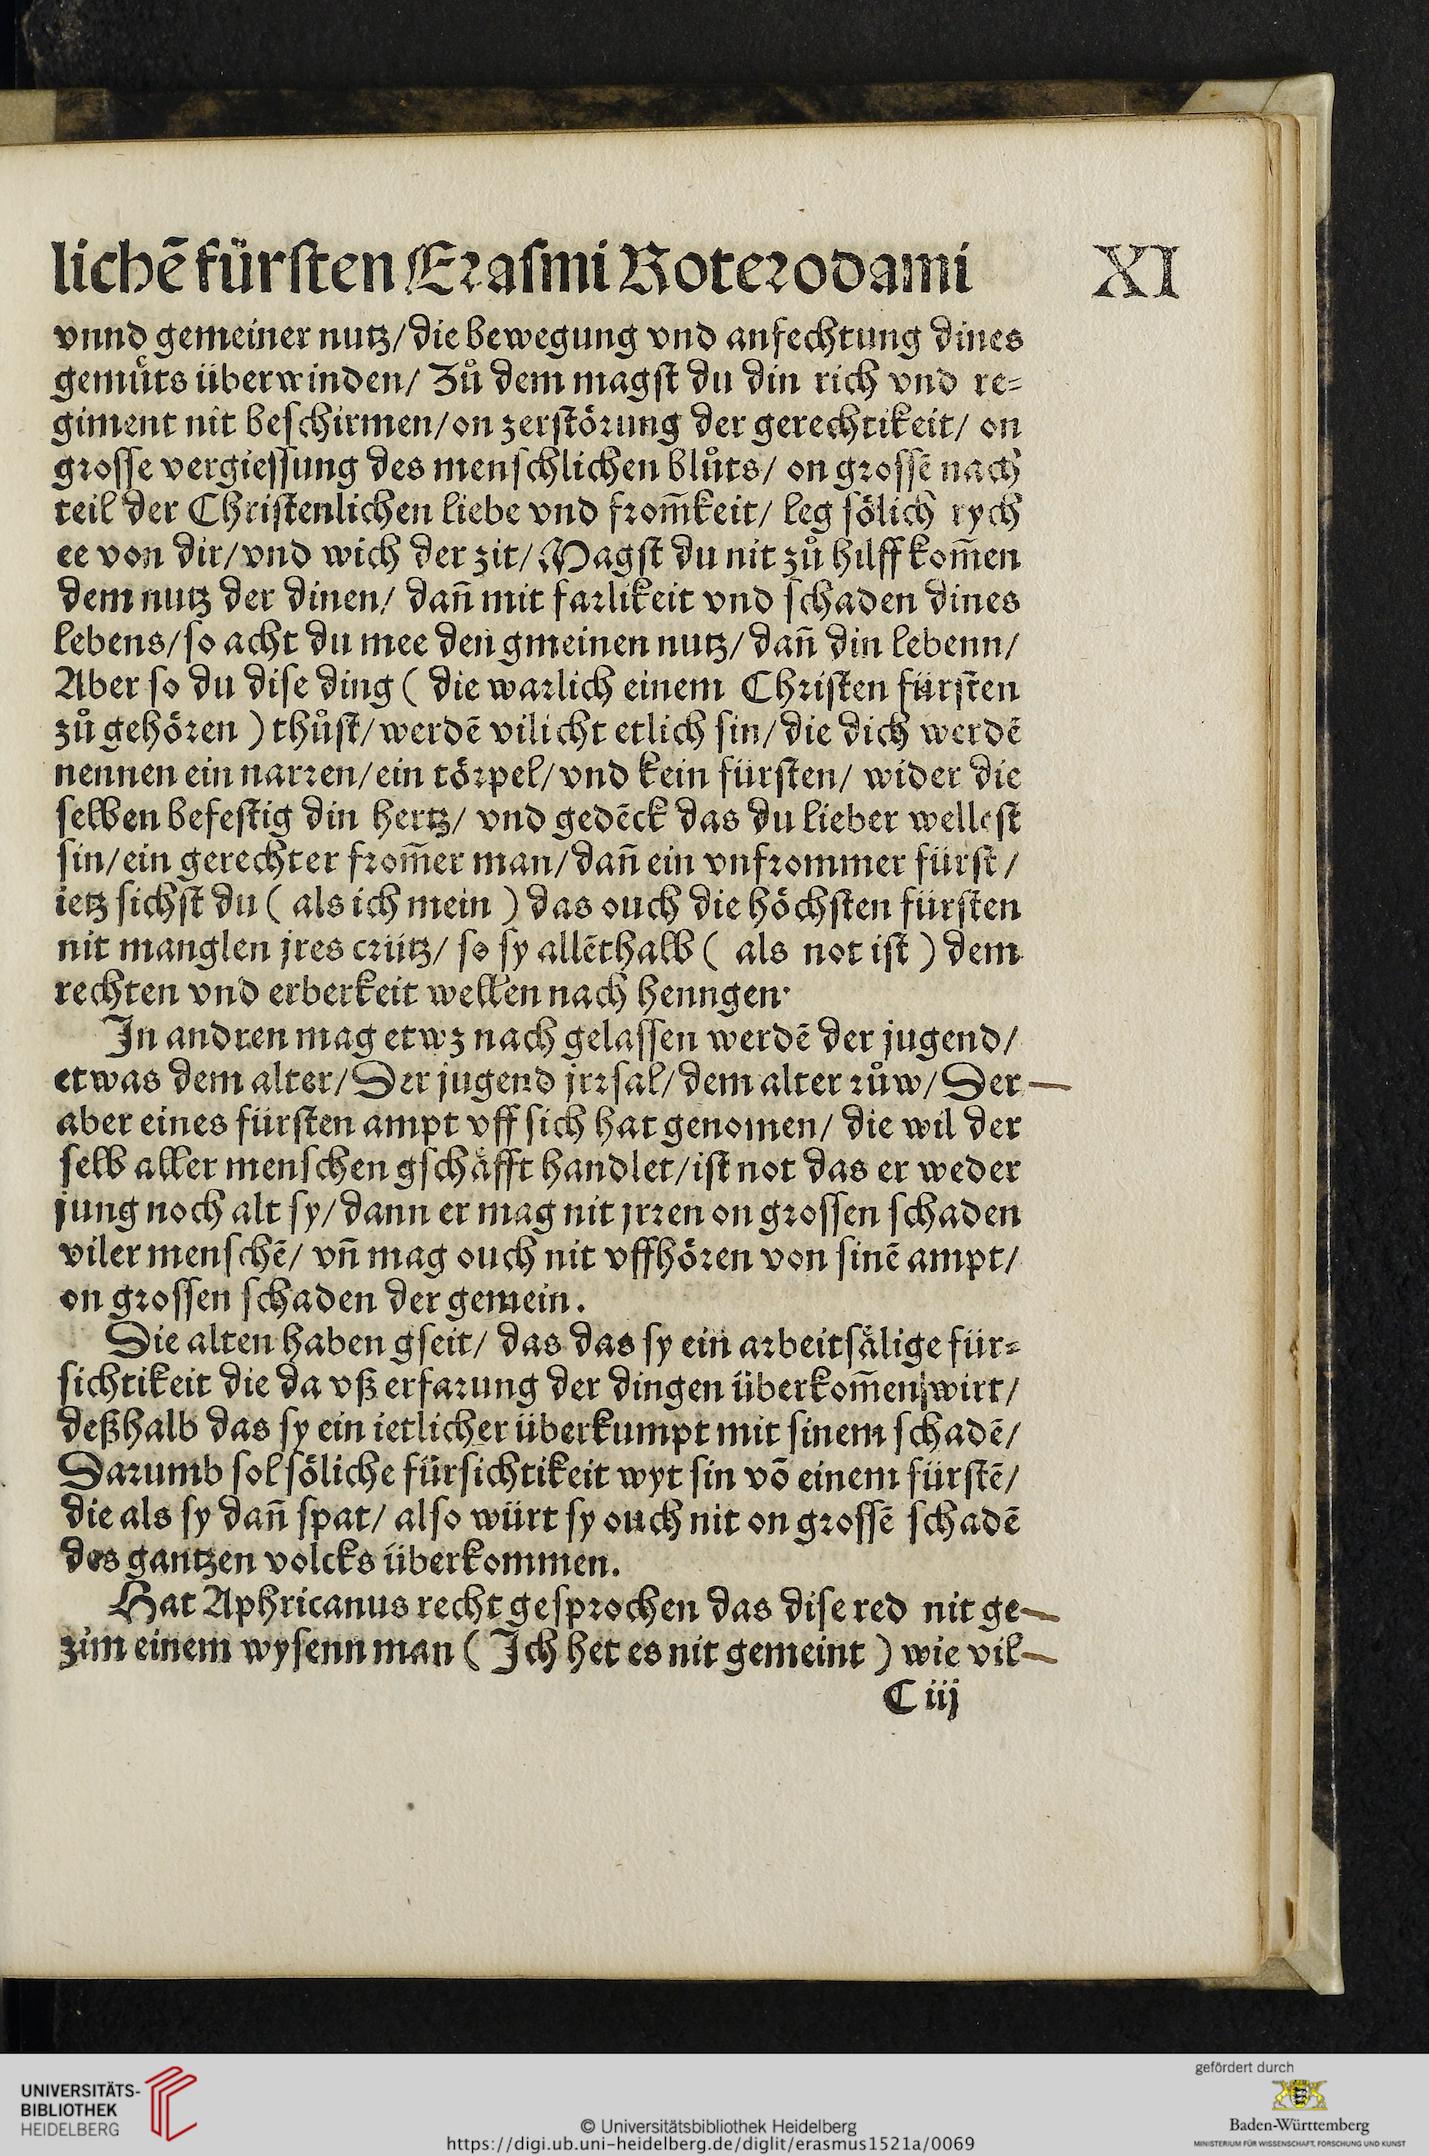 lichē fürſten Eraſmi Roterodami XI
vnnd gemeiner nutz/ die bewegung vnd anfechtung dines
gemuͤts überwinden/ Zů dem magſt du din rich vnd re⸗
giment nit beſchirmen/ on zerſtörung der gerechtikeit/ on
groſſe vergieſſung des menſchlichen blůts/ on groſſē nach
teil der Chriſtenlichen liebe vnd from̄keit/ leg ſölich rych
ee von dir/ vnd wich der zit/ Magſt du nit zů hilff kom̄en
dem nutz der dinen/ dañ mit farlikeit vnd ſchaden dines
lebens/ ſo acht du mee den gmeinen nutz/ dañ din lebenn/
Aber ſo du diſe ding ( die warlich einem Chriſten fürſten
zů gehören ) thůſt/ werdē vilicht etlich ſin/ die dich werdē
nennen ein narren/ ein törpel/ vnd kein fürſten/ wider die
ſelben befeſtig din hertz/ vnd gedēck das du lieber welleſt
ſin/ ein gerechter from̄er man/ dañ ein vnfrommer fürſt/
ietz ſichſt du ( als ich mein ) das ouch die höchſten fürſten
nit manglen jres crütz/ ſo ſy allēthalb ( als not iſt ) dem
rechten vnd erberkeit wellen nach henngen·
In andren mag etwz nach gelaſſen werdē der jugend/
etwas dem alter/ Der jugend jrrſal/ dem alter růw/ Der
aber eines fürſten ampt vff ſich hat genomen/ die wil der
ſelb aller menſchen gſchäfft handlet/ iſt not das er weder
jung noch alt ſy/ dann er mag nit jrren on groſſen ſchaden
viler menſchē/ vñ mag ouch nit vffhören von ſinē ampt/
on groſſen ſchaden der gemein.
Die alten haben gſeit/ das das ſy ein arbeitſälige für⸗
ſichtikeit die da vß erfarung der dingen überkom̄en wirt/
deßhalb das ſy ein ietlicher überkumpt mit ſinem ſchadē/
Darumb ſol ſöliche fürſichtikeit wyt ſin vō einem fürſtē/
die als ſy dañ ſpat/ alſo würt ſy ouch nit on groſſē ſchadē
des gantzen volcks überkommen.
Hat Aphricanus recht geſprochen das diſe red nit ge
zim einem wyſenn man ( Ich het es nit gemeint ) wie vil
C iij
UNIVERSITÄTS-
BIBLIOTHEK
HEIDELBERG
© Universitätsbibliothek Heidelberg
https://digi.ub.uni-heidelberg.de/diglit/erasmus1521a/0069
gefördert durch
Baden-Württemberg
MINISTERIUM FÜR WISSENSCHAFT, FORSCHUNG UND KUNST